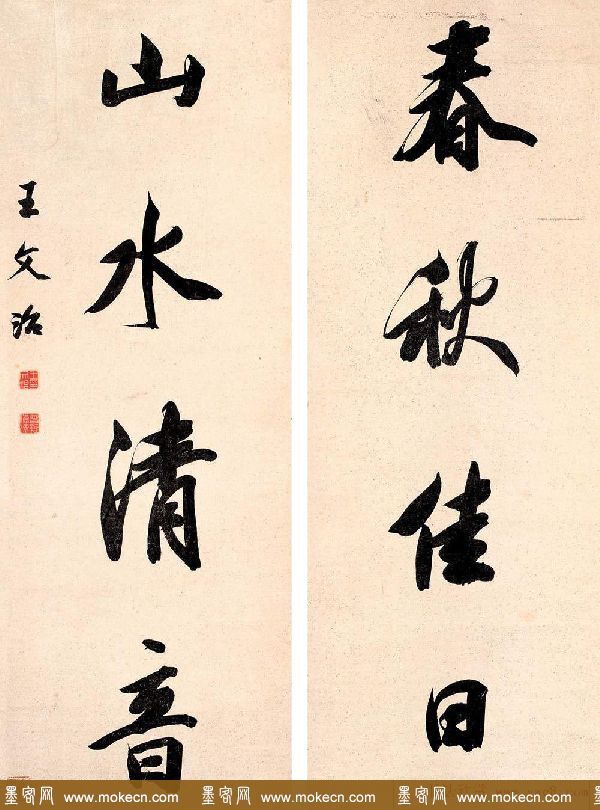 春秋佳日
山水清音
王文治
墨客网 www.mokecn.com 墨客网 www.mokecn.com 墨客网 www.mokecn.com